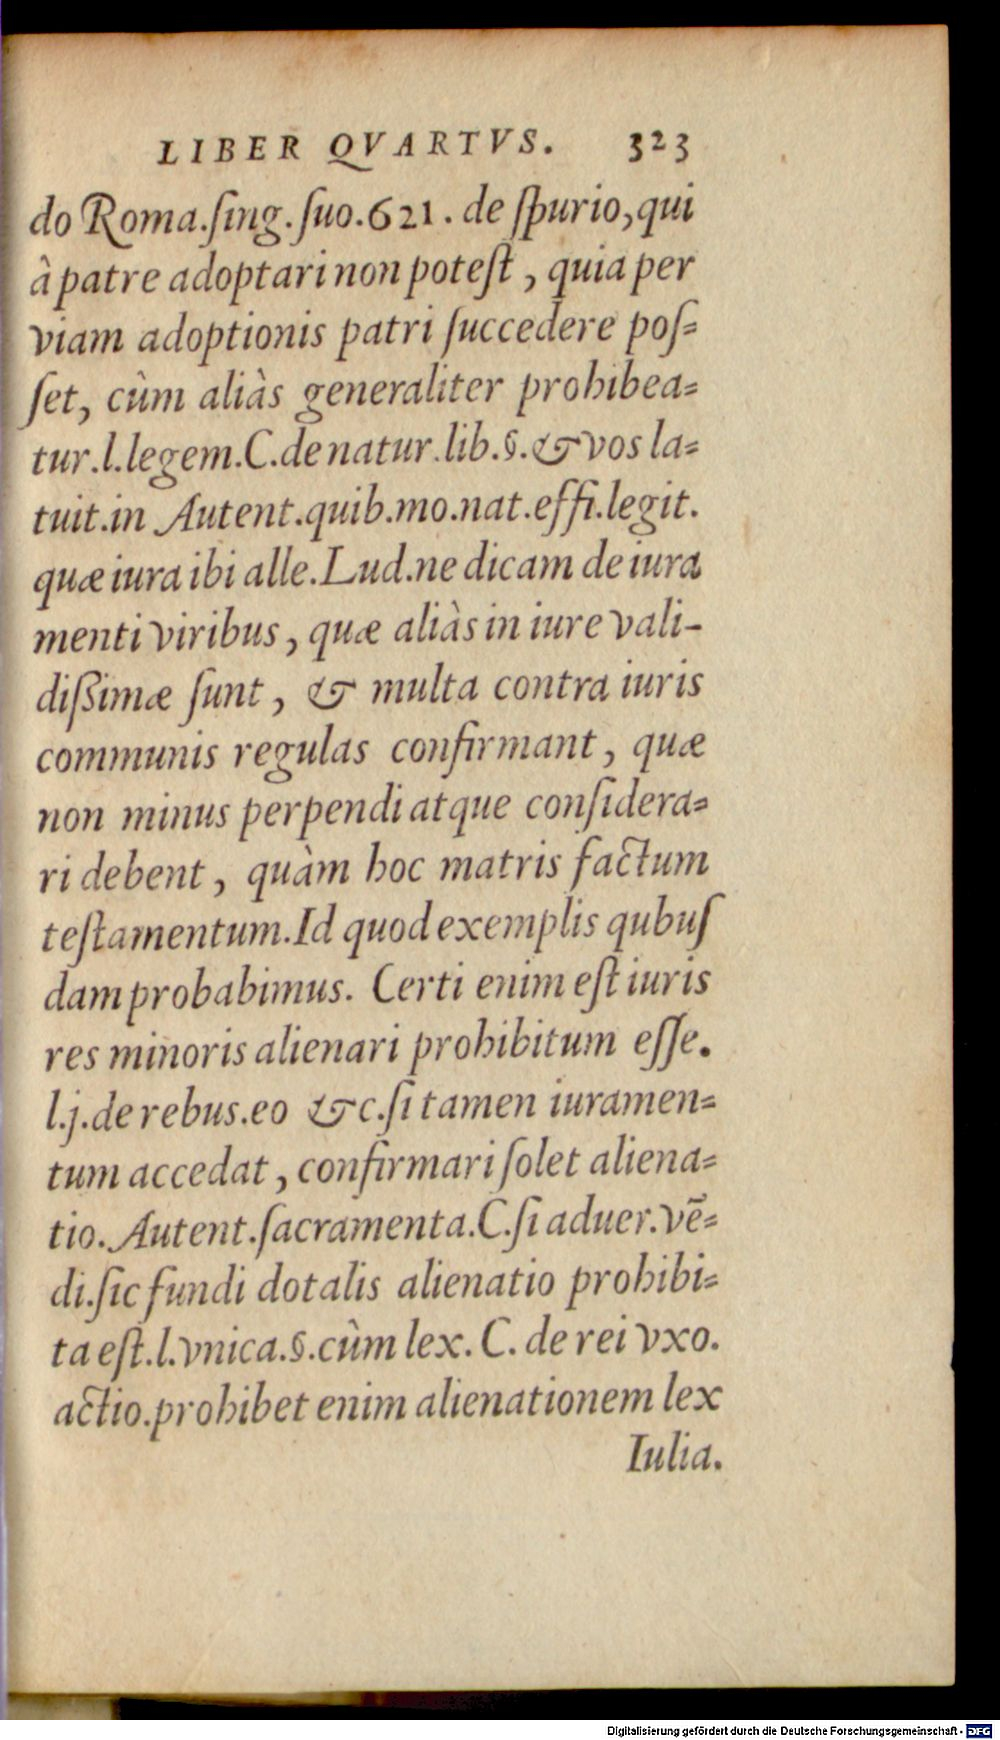 LIBER QVARTVS. 323
do Roma.ſing.ſuo.621. de ſpurio, qui
à patre adoptari non poteſt, quia per
viam adoptionis patri ſuccedere poſ=
ſet, cùm aliàs generaliter prohibea=
tur.l.legem.C.de natur.lib.§.& vos la=
tuit.in Autent.quib.mo.nat.effi.legit.
quæ iura ibi alle.Lud.ne dicam de iura
menti viribus, quæ aliàs in iure vali-
dißimæ ſunt, & multa contra iuris
communis regulas confirmant, quæ
non minus perpendi atque conſidera=
ri debent, quàm hoc matris factum
teſtamentum.Id quod exemplis qubuſ
dam probabimus. Certi enim eſt iuris
res minoris alienari prohibitum eſſe.
l.j.de rebus.eo &c.ſi tamen iuramen=
tum accedat, confirmari ſolet aliena=
tio.Autent.ſacramenta.C.ſi aduer.vē=
di.ſic fundi dotalis alienatio prohibi=
ta eſt.l.vnica.§.cùm lex. C. de rei vxo.
actio.prohibet enim alienationem lex
Iulia.
Digitalisierung gefördert durch die Deutsche Forschungsgemeinschaft - DFG